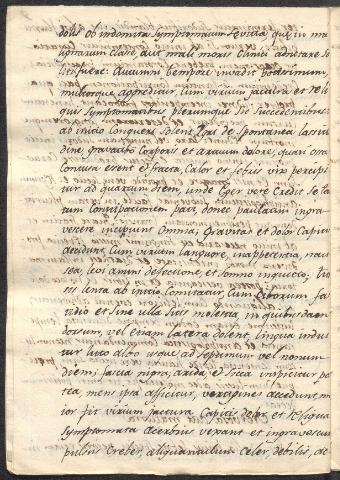 dolis ob indomita symptomatum sevitia, que in ma
lignarum classe aut mali moris
Autumni tempore invadit
multosque aggreditur, cum virium jactura et reli
quis symptomatibus plerumque sic succedentibus
ab initio conqueri solent Egri de spontanea lassitu
dine gravativo corporis et artuum dolore, quasi ossa
contusa essent et fracta, calor et febris vix percipi
tur ad quartum diem, unde Eger vere credit se to
tum constipationem pati, donec paulatim ingra
vescere incipiunt omnia, gravitas et dolor capitis
accedunt cum virium languore, inappetentia, nau
sea, levi animi defectione, et somno inquieto;
sitis lenta ab initio cum ciborum fas
tidio et sine ulla sitis molestia in quibusdam
dorsum, vel etiam latera dolent, lingua indui
tur luto albo usque ad septimum vel nonum
diem fascia nigra, arida et sicca inspicitur pos
tea mens ipsa afficitur, vertigines accedunt, ma
ior fit virium jactura capitis dolor, et reliqua
symptomata acerbius vexant et ingravescunt
pulsus creber, aliquantulum celer, debilis, ac